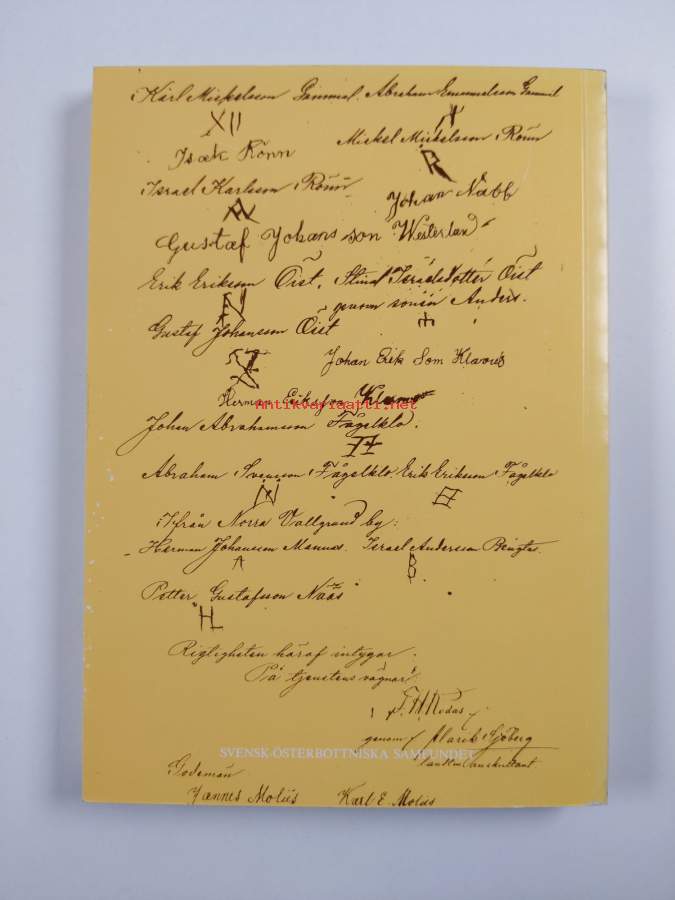 Karl Mickelsson Gammal. Abraham Emmanuelsson Gammal
XII
Isak Rönn Mickel Mickelsson Rönn
R
Israel Karlsson Rönn Johan Nabb
A
Gustaf Johans son Westerlund
Erik Eriksson Öist, Stina Israelsdotter Öist
genom sonen Anders.
Gustaf Johansson Öist
Johan Erik Son Klavus
Herman Eriksson
Antikvariaatti.net
Johan Abrahamsson Fågelklo.
Abraham Svensson Fågelklo, Erik Eriksson Fågelklo
Ifrån Norra Vallgrund by:
Herman Johansson Mannas. Israel Andersson Bengtas.
A B
Petter Gustafsson Nääs
H
Rigtigheten häraf intygar.
På tjenstens vägnar:
genom Alarik Sjöberg
SVENSK-ÖSTERBOTTNISKA SAMFUNDET
Godemän
Hannes Moliis Karl E. Moliis